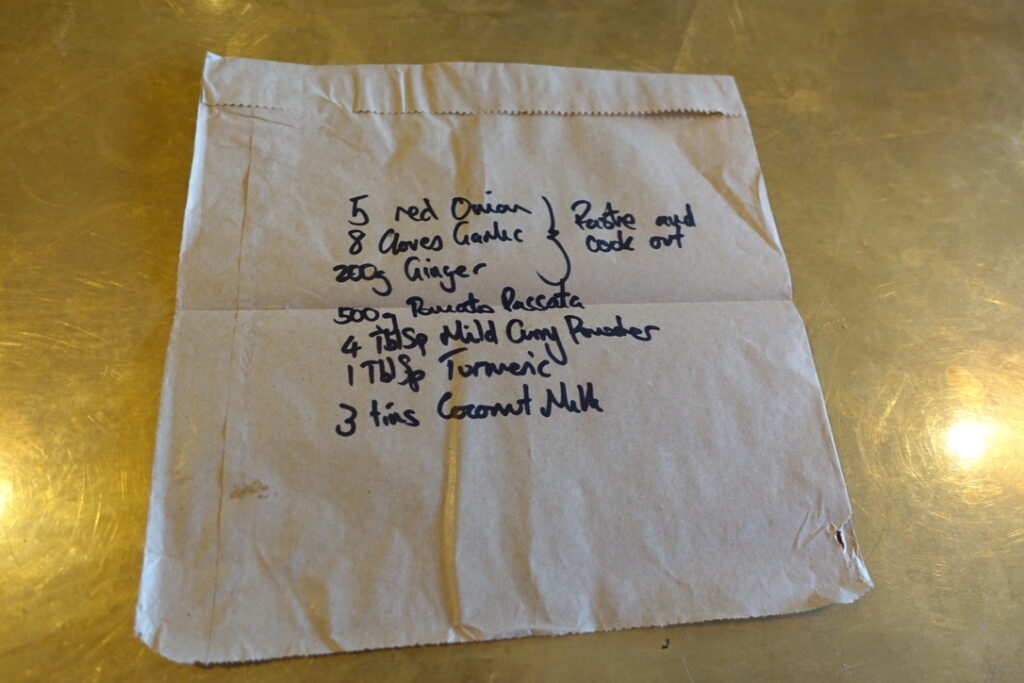 5 red Onion
8 Cloves Garlic
200g Ginger
Paste and
cook out
500g Tomato Passata
4 TblSp Mild Curry Powder
1 TblSp Turmeric
3 tins Coconut Milk